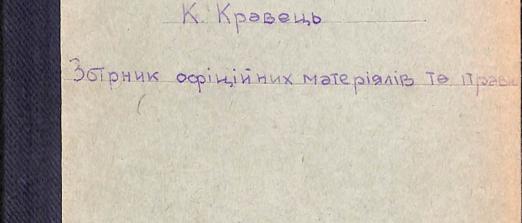 К. Кравець
Збірник офіційних матеріялів та прави